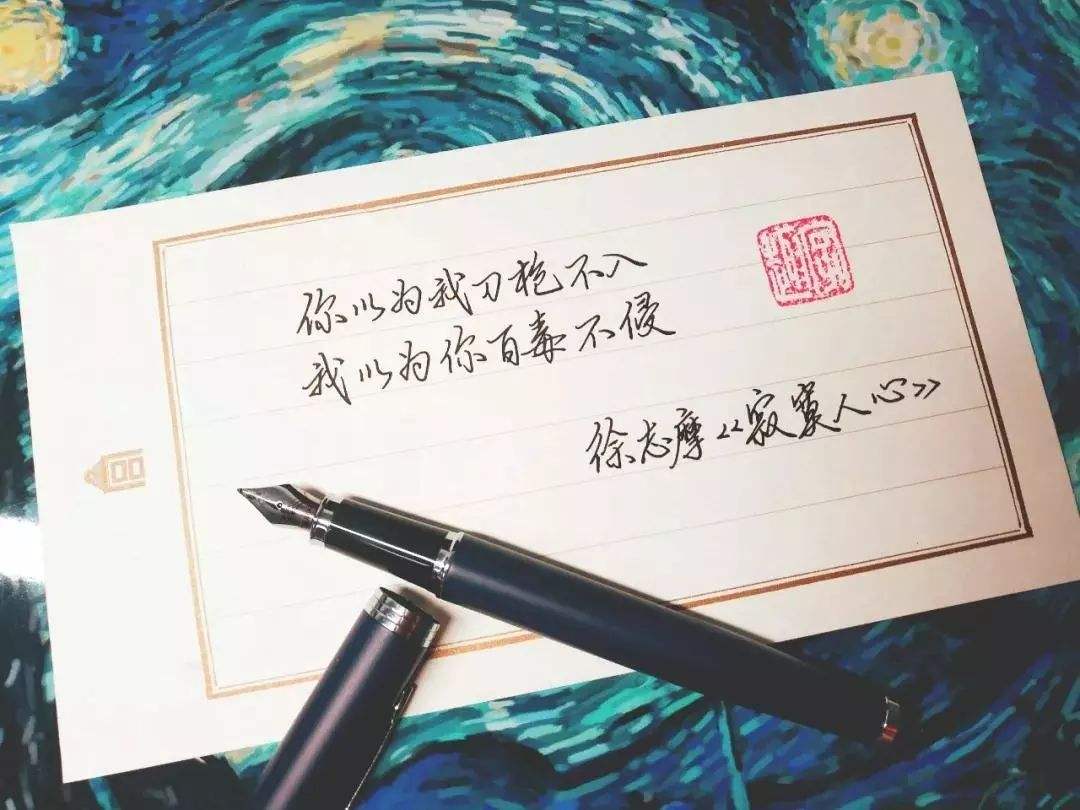 你以为我刀枪不入
我以为你百毒不侵
徐志摩《寂寞人心》